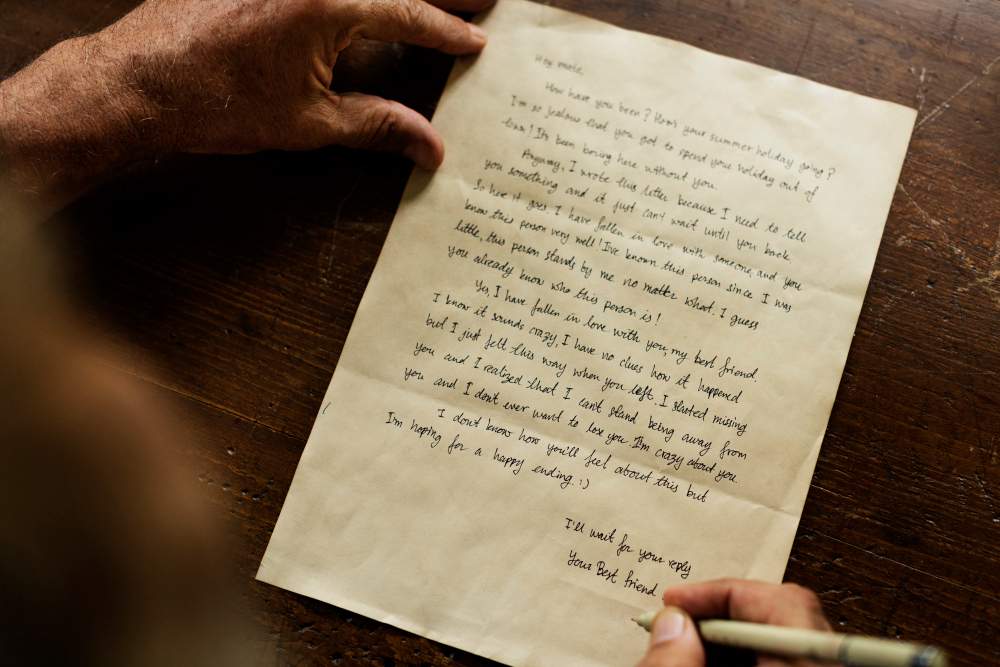 Hey mate,
How have you been? How's your summer holiday going?
I'm so jealous that you got to spend your holiday out of
town! It's been boring here without you.
Anyway, I wrote this letter because I need to tell
you something and it just can't wait until you back.
So here it goes. I have fallen in love with someone, and you
know this person very well! I've known this person since I was
little, this person stands by me no matter what. I guess
you already know who this person is!
Yes, I have fallen in love with you, my best friend.
I know it sounds crazy, I have no clues how it happened
but I just felt this way when you left. I started missing
you and I realized that I can't stand being away from
you and I don't ever want to lose you. I'm crazy about you.
I don't know how you'll feel about this but
I'm hoping for a happy ending. :)
I'll wait for your reply
Your Best friend